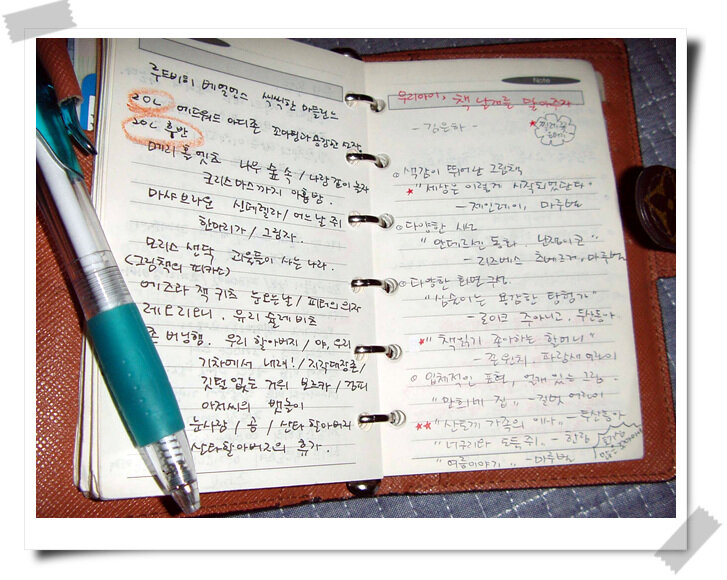 루드비히 베멀먼스 씩씩한 마들린느
20C 에드워드 아디존
20C 후반
메리 홀 엣츠 나무 숲 속 / 나랑 같이 놀자
크리스마스까지 아홉밤.
마샤 브라운 신데렐라 / 어느날 쥐
한마리가 / 그림자.
모리스 샌닥 괴물들이 사는 나라.
(그림책의 피카소)
에즈라 잭 키츠 눈오는날 / 피터의 의자
레오리오니, 유리 슐레비츠
존 버닝햄. 우리 할아버지 / 야, 우리
기차에서 내려! / 지각대장존/
깃털없는 거위 보르카 / 검피
아저씨의 뱃놀이
눈사람 / 곰 / 산타 할아버지
산타할아버지의 휴가.
Note
우리아이, 책 날개를 달아주자
- 김은하 -
색감이 뛰어난 그림책
"세상은 이렇게 시작되었단다"
- 제인레이, 마루벌
다양한 시도
"안데르센 동화
- 리즈베스 츠베르거, 마루벌
다양한 화면 구성
"심술이는 용감한 탐험가"
- 두산동아
"책읽기 좋아하는 할머니"
- 존 윈치, 파랑새 어린이
입체적인 표현, 깊이 있는 그림
"만희네 집" - 길벗 어린이
"산동네 가족의 - 두산동아
"너구리와 도둑쥐" -
"여름이야기" - 마루벌